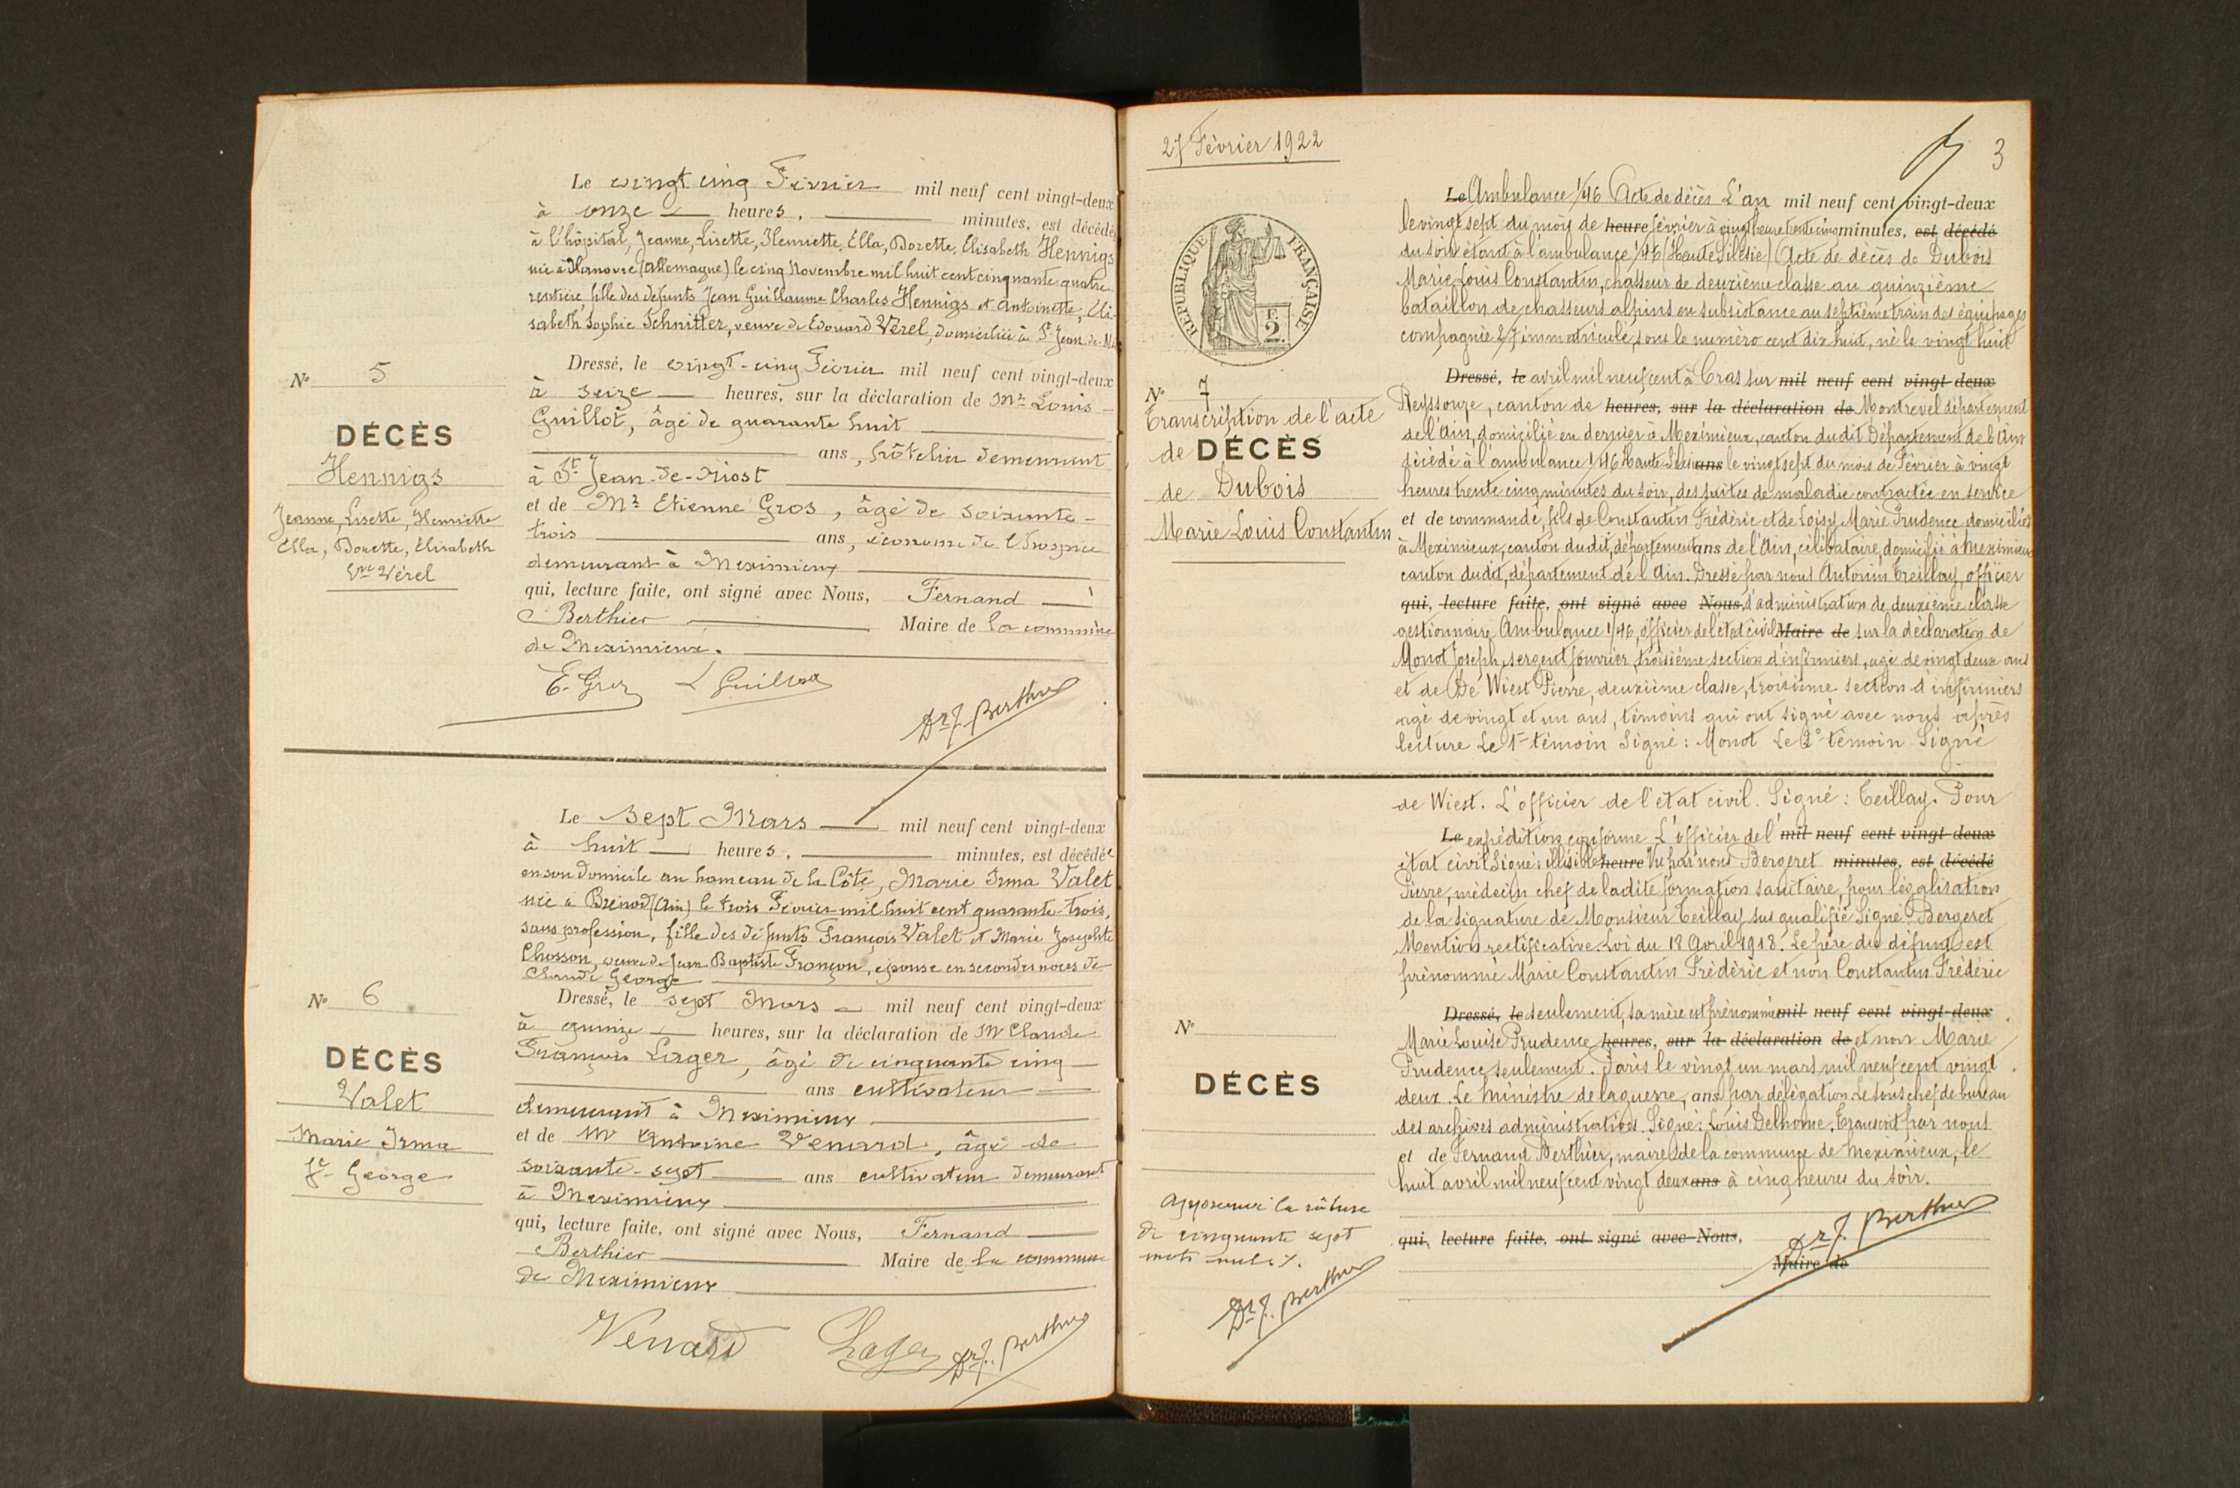 Le vingt cinq Février mil neuf cent vingt-deux
à onze heures, minutes, est décédée
à l'hôpital, Jeanne, Lisette, Henriette, Ella, Dorette, Elisabeth Hennigs
née à Hanovre (Allemagne) le cinq Novembre mil huit cent cinquante quatre
rentière, fille des défunts Jean Guillaume Charles Hennigs et Antoinette, Eli-
sabeth, Sophie Schnitter, veuve de Edouard Vérel, domiciliée à St Jean-de-Ni
N° 5
DÉCÈS
Hennigs
Jeanne, Lisette, Henriette
Ella, Dorette, Elisabeth
Vve Vérel
Dressé, le vingt-cinq Février mil neuf cent vingt-deux
à seize heures, sur la déclaration de Mr Louis
Guillot, âgé de quarante huit
ans, hôtelier demeurant
à St Jean-de-Niost
et de Mr Etienne Gros, âgé de soixante-
trois ans, économe de l'hospice
demeurant à Meximieux
qui, lecture faite, ont signé avec Nous, Fernand
Berthier Maire de la commune
de Meximieux.
E. Gros L Guillot
Dr F. Berthier
Le sept Mars mil neuf cent vingt-deux
à huit heures, minutes, est décédée
en son domicile au hameau de la Côte, Marie Irma Valet
née à Brénod (Ain) le trois Février mil huit cent quarante-trois,
sans profession, fille des défunts François Valet et Marie Josephte
Chosson, veuve de Jean Baptiste Françon, épouse en secondes noces de
Claude George
N° 6
DÉCÈS
Valet
Marie Irma
fe George
Dressé, le sept Mars mil neuf cent vingt-deux
à quinze heures, sur la déclaration de Mr Claude
François Lager, âgé de cinquante cinq
ans cultivateur
demeurant à Meximieux
et de Mr Antoine Venard, âgé de
soixante-sept ans cultivateur demeurant
à Meximieux
qui, lecture faite, ont signé avec Nous, Fernand
Berthier Maire de la commune
de Meximieux
Venard Lager Dr F. Berthier
27 Février 1922
3
RÉPUBLIQUE FRANÇAISE
2F
N° 7
Transcription de l'acte
de DÉCÈS
de Dubois
Marie Louis Constantin
Le Ambulance 1/46 Acte de décès L'an mil neuf cent vingt-deux
le vingt sept du mois de heure février à vingt heures trente cinq minutes, est décédé
du soir étant à l'ambulance 1/46 (Haute Silésie) Acte de décès de Dubois
Marie Louis Constantin, chasseur de deuxième classe au quinzième
bataillon de chasseurs alpins en subsistance au septième train des équipages
compagnie 2/7 immatriculé, sous le numéro cent dix huit, né le vingt huit
Dressé, le avril mil neuf cent à Cras sur mil neuf cent vingt-deux
Reyssouze, canton de heures, sur la déclaration de Montrevel département
de l'Ain, domicilié en dernier à Meximieux, canton dudit Département de l'Ain
décédé à l'ambulance 1/46 Haute Silésie ans le vingt sept du mois de Février à vingt
heures trente cinq minutes du soir, des suites de maladie contractée en service
et de commandé, fils de Constantin Frédéric et de Loisy Marie Prudence domiciliés
à Meximieux, canton dudit, département ans de l'Ain, célibataire, domicilié à Meximieux
canton dudit, département de l'Ain. Dressé par nous Antonin Creillay, officier
qui, lecture faite, ont signé avec Nous, d'administration de deuxième classe
gestionnaire Ambulance 1/46, officier de l'état civil Maire de sur la déclaration de
Monot Joseph, sergent fourrier, troisième section d'infirmiers, agé de vingt deux ans
et de De Wiest Pierre, deuxième classe, troisième section d'infirmiers
agé de vingt et un ans, témoins qui ont signé avec nous après
lecture Le 1er témoin Signé: Monot Le 2e témoin Signé
de Wiest. L'officier de l'état civil. Signé: Teillay. Pour
Le expédition conforme L'officier de l' mil neuf cent vingt-deux
état civil Signé: illisible heure Vu par nous Bergeret minutes, est décédé
Pierre, médecin chef de ladite formation sanitaire, pour légalisation
de la signature de Monsieur Teillay sus qualifié Signé Bergeret
Mention rectificative. Loi du 18 Avril 1918. Le père du défunt est
prénommé Marie Constantin Frédéric et non Constantin Frédéric
N°
DÉCÈS
Dressé, le seulement, sa mère est prénommée mil neuf cent vingt-deux
Marie Louise Prudence heures, sur la déclaration de et non Marie
Prudence seulement. Paris le vingt un mars mil neuf cent vingt
deux. Le Ministre de la guerre, ans par délégation Le sous chef de bureau
des archives administratives. Signé: Louis Delhome. Transcrit par nous
et de Fernand Berthier, maire de la commune de Meximieux, le
huit avril mil neuf cent vingt deux ans à cinq heures du soir.
qui, lecture faite, ont signé avec Nous,
Maire de
Dr F. Berthier
Approuvé la râture
de cinquante sept
mots nuls.
Dr F. Berthier